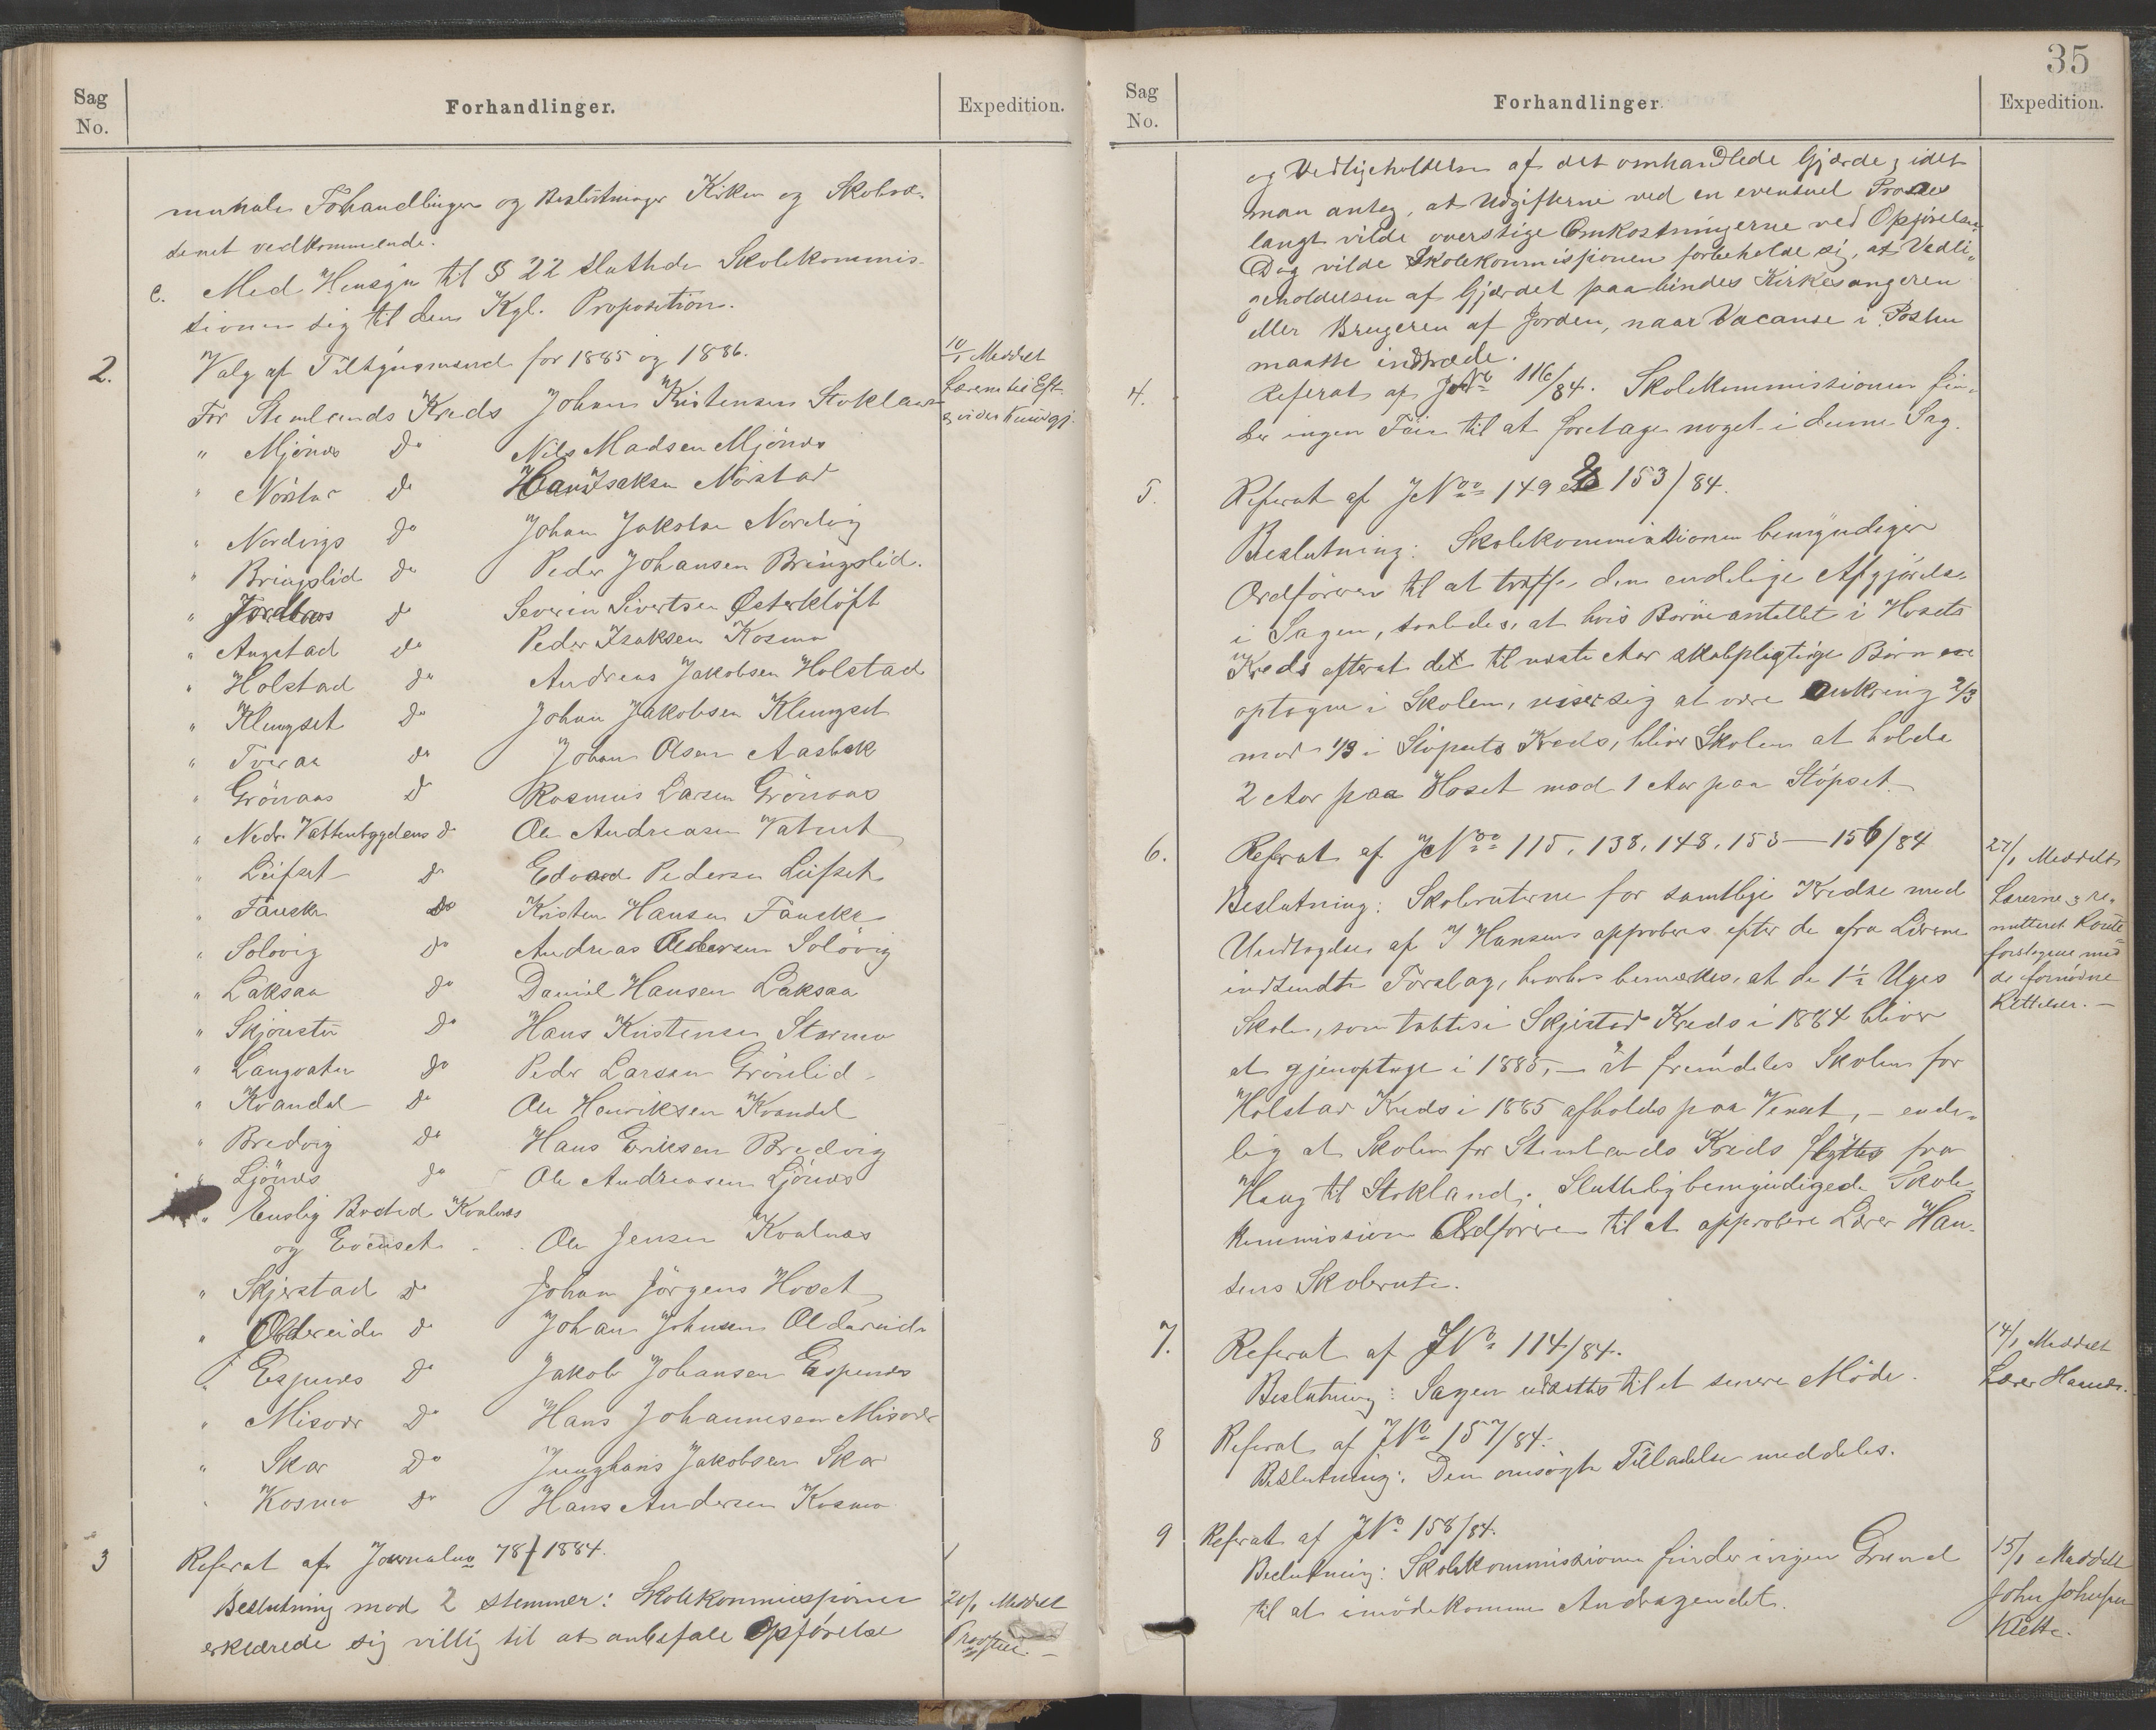 Sag
No.
Forhandlinger.
Expedition.
munale Forhandlinger og Beslutninger Kirken og Skolevæ-
senet vedkommende.
c. Med Hensyn til § 22 sluttede Skolekommis-
sionen sig til den Kgl. Proposition.
2. Valg af Tilsynsmænd for 1885 og 1886.
10/1 Meddelt
Lærerne til Eft-
For Stemlands Kreds Johan Kristensen Stokland
" Mjönæs Do Nils Madsen Mjönæs
" Nörstad Do Hans Isaksen Nörstad
" Nordvigs Do Johan Jakobsen Nordvig
" Bringslid Do Peder Johansen Bringslid.
" Jordbros Do Severin Sivertsen Österklöft
" Augstad Do Peder Isaksen Kosmo
" Holstad Do Andreas Jakobsen Holstad
" Klungset Do Johan Jakobsen Klungset
" Tveraa Do Johan Olsen Aasbak
" Grönaas Do Rasmus Larsen Grönaas
" Nedr. Vattenbygdens Do Ole Andreasen Vatnet
" Leifset Do Edvard Pedersen Leifset
" Fauske Do Kristen Hansen Fauske
" Solövig Do Andreas Pedersen Solövig
" Laksaa Do Daniel Hansen Laksaa
" Skjönstu Do Hans Kristensen Stormo
" Langvatn Do Peder Larsen Grönlid
" Kvandal Do Ole Henriksen Kvandal
" Bredvig Do Hans Eriksen Bredvig
" Ljönæs Do Ole Andreasen Ljönæs
" Enslig Bosted Kvalnæs
og Evenset Ole Jensen Kvalnæs
" Skjerstad Do Johan Jörgens Hoset
" Oldereide Do Johan Johnsen Oldereide
" Espenes Do Jakob Johansen Espenes
" Misvær Do Hans Johannesen Misvær
" Skar Do Junghans Jakobsen Skar
" Kosmo Do Hans Andersen Kosmo
3 Referat af Journalno 78/1884.
Beslutning mod 2 stemmer: Skolekommissionen
20/1 Meddelt
erklærede sig villig til at anbefale Opförelse
Provsten.
35
Sag
No.
Forhandlinger
Expedition.
og Vedligeholdelse af det omhandlede Gjærde, idet
man antog, at Udgifterne ved en eventuel Proces
langt vilde overstige Omkostningerne ved Opförelsen.
Dog vilde Skolekommissionen forbeholde sig, at Vedli-
geholdelsen af Gjærdet paabindes Kirkesangeren
eller Brugeren af Jorden, naar Vacanse i Posten
maatte indtræde.
4. Referat af JNo 116/84. Skolekommissionen fin-
der ingen Föie til at foretage noget i denne Sag.
5. Referat af JNoo 149 & 153/84.
Beslutning: Skolekommissionen bemyndiger
Ordföreren til at træffe den endelige Afgjörelse
i Sagen, saaledes, at hvis Börneantallet i Hosets
Kreds efterat det til næste Aar skolepligtige Börn ere
optagne i Skolen, viser sig at være omkring 2/3
mod 1/3 i Stöpsets Kreds, bliver Skolen at holde
2 Aar paa Hoset mod 1 Aar paa Stöpset.
6. Referat af JNoo 115, 138, 148, 153 — 156/84
27/1 Meddelt
Beslutning: Skoleruterne for samtlige Kredse med
Lærerne & re-
Undtagelse af J Hansens approberes efter de fra Lærerne
mitteret Route-
forslagene med
indsendte Forslag, hvorhos bemærkes, at de 1½ Uges
de fornödne
Rettelser. —
Skole, som tabtes i Skjerstad Kreds i 1884 bliver
at gjenoptage i 1885, — at fremdeles Skolen for
Holstad Kreds i 1885 afholdes paa Venset, — ende-
lig at Skolen for Stemlands Kreds flyttes fra
Haug til Stokland. Sluttelig bemyndigede Skole-
kommission Ordförer til at approbere Lærer Han-
sens Skolerute.
7. Referat af JNo 114/84.
14/1 Meddelt
Beslutning: Sagen udsættes til et senere Möde.
Lærer Hansen.
8 Referat af JNo 157/84.
Beslutning: Den ansögte Tilladelse meddeles.
9 Referat af JNo 158/84.
Beslutning: Skolekommissionen finder ingen Grund
15/1 Meddelt
til at imödekomme Andragendet.
John Johnsen
Klette.